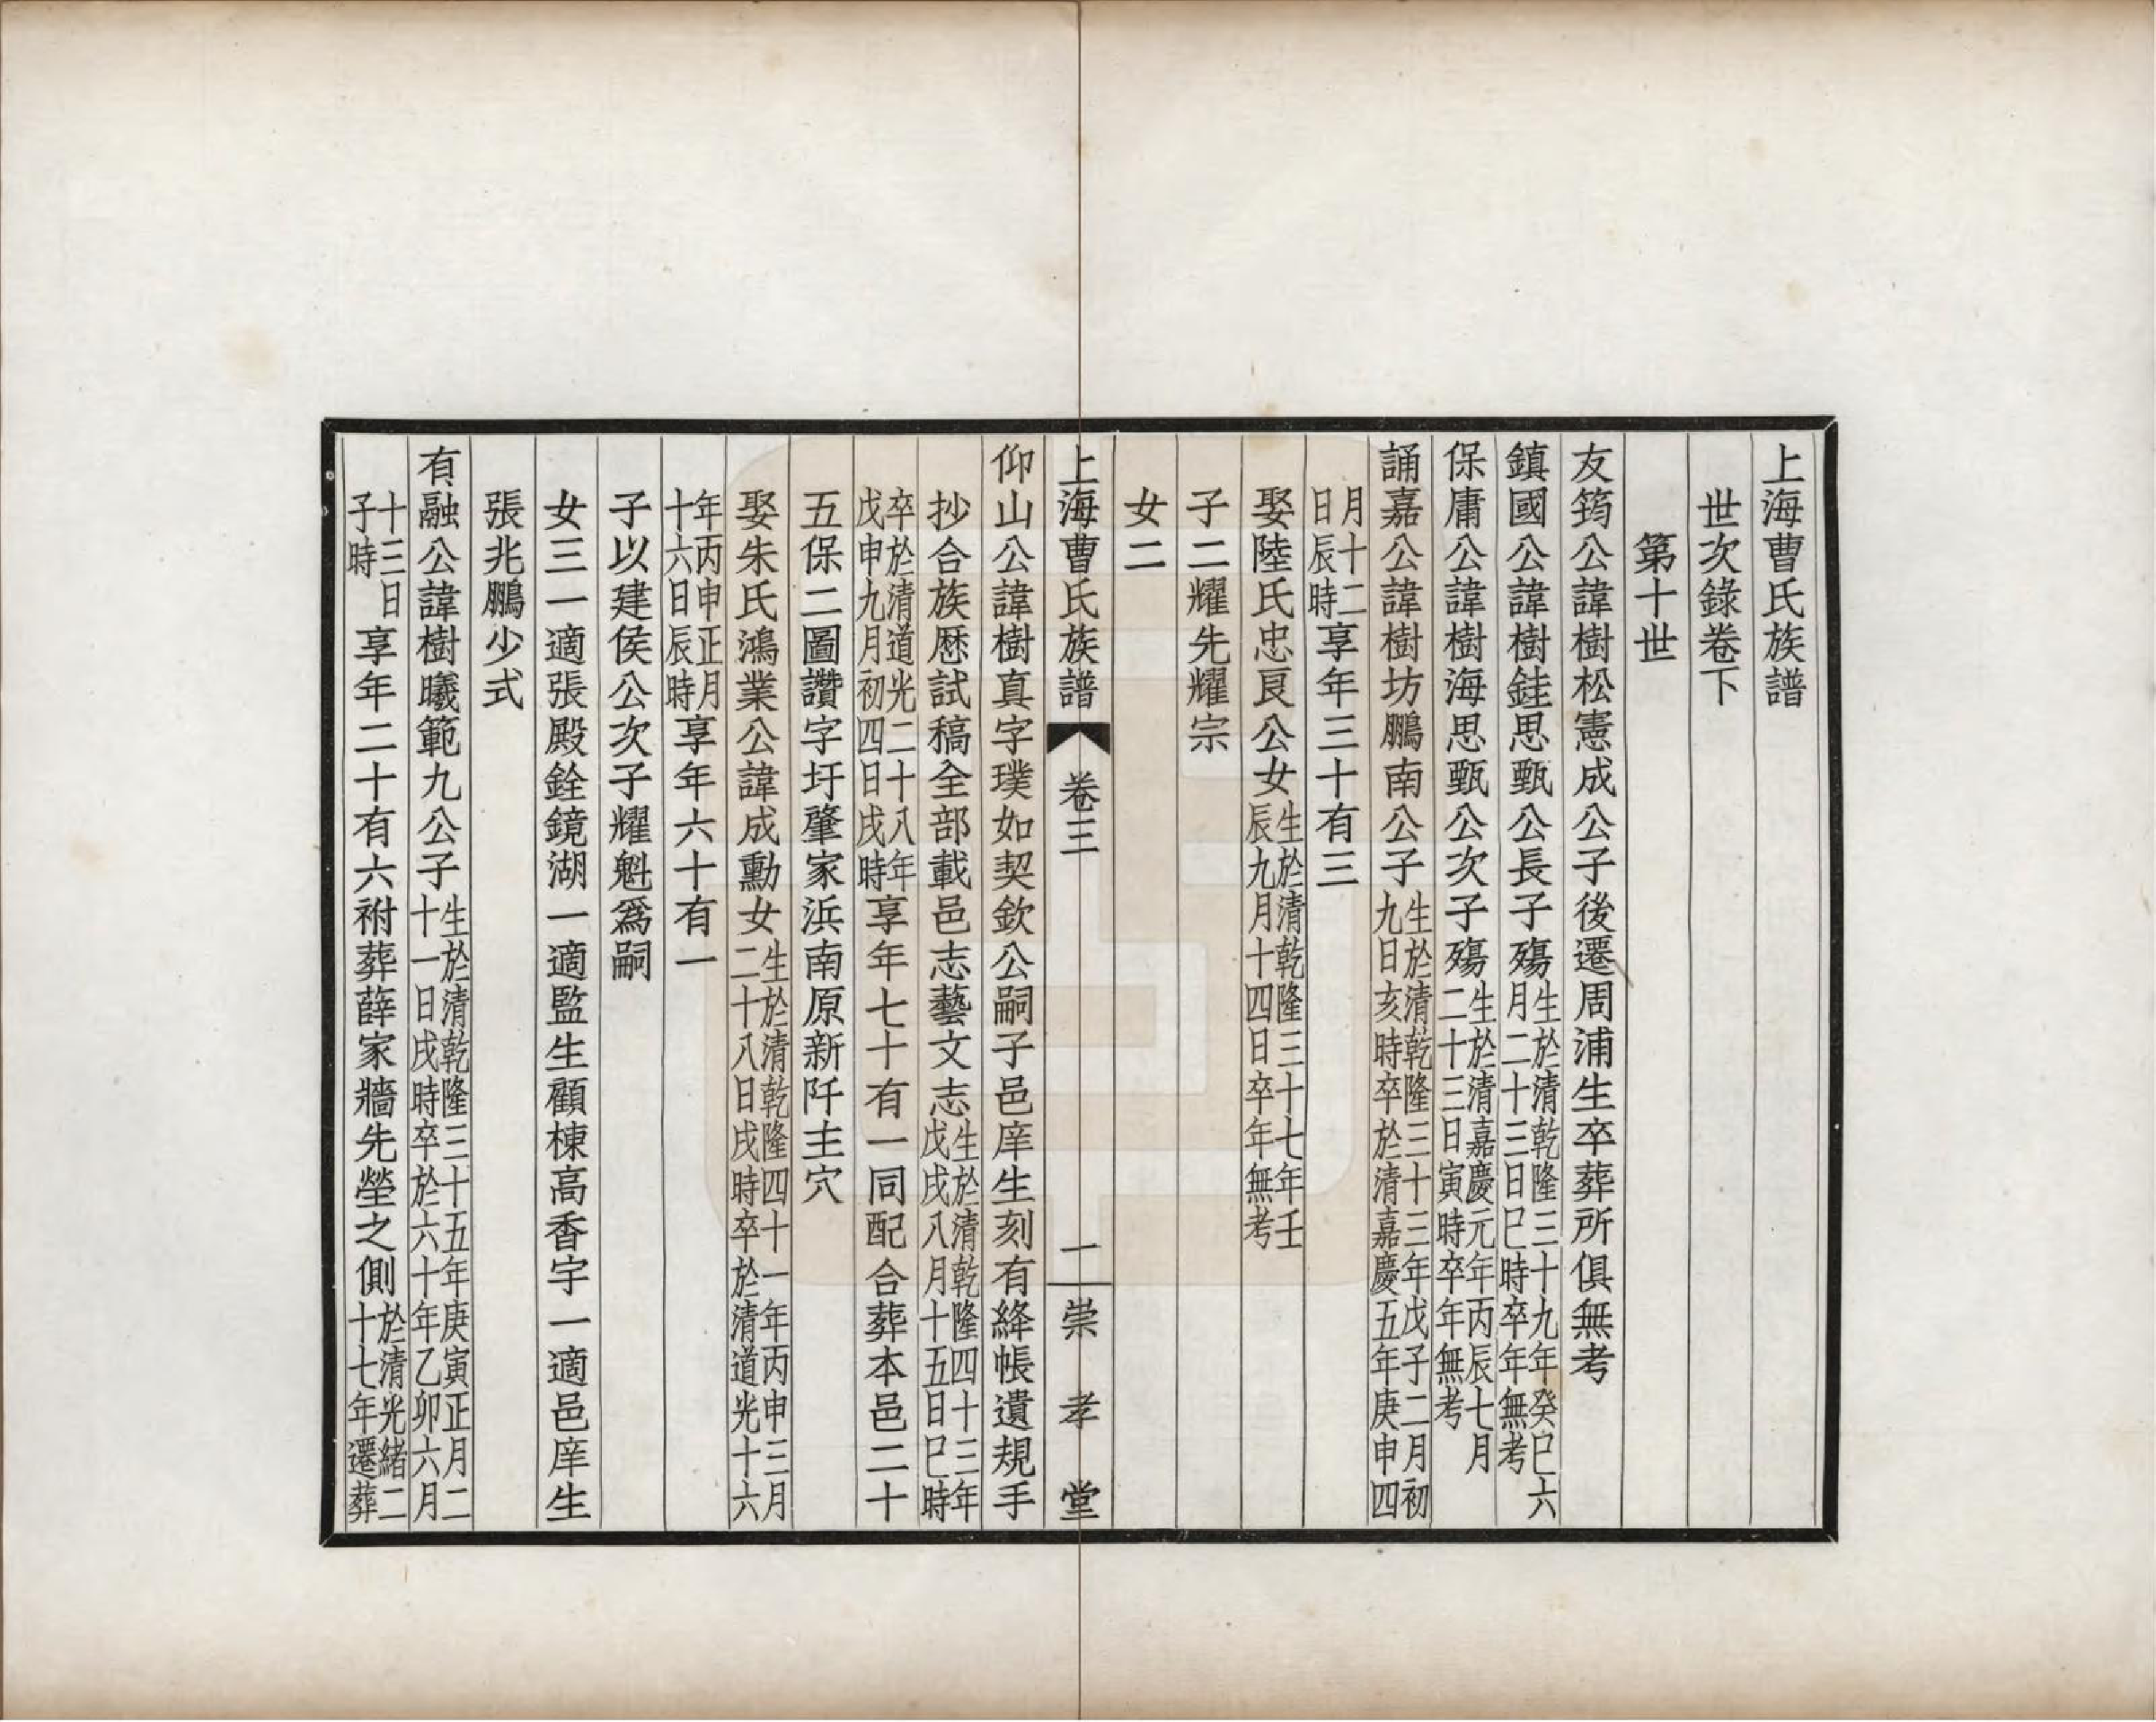 上海曹氏族譜
世次錄卷下
第十世
友筠公諱樹松憲成公子後遷周浦生卒葬所俱無考
鎮國公諱樹銈思甄公長子殤生於清乾隆三十九年癸巳六月二十三日巳時卒年無考
保庸公諱樹海思甄公次子殤生於清嘉慶元年丙辰七月二十三日寅時卒年無考
誦嘉公諱樹坊鵬南公子生於清乾隆三十三年戊子二月初九日亥時卒於清嘉慶五年庚申四
月十二日辰時享年三十有三
娶陸氏忠良公女生於清乾隆三十七年壬辰九月十四日卒年無考
子二耀先耀宗
女二
上海曹氏族譜 卷三 一 崇孝堂
仰山公諱樹真字璞如契欽公嗣子邑庠生刻有絳帳遺規手
抄合族歷試稿全部載邑志藝文志生於清乾隆四十三年戊戌八月十五日巳時
卒於清道光二十八年戊申九月初四日戌時享年七十有一同配合葬本邑二十
五保二圖讚字圩肇家浜南原新阡主穴
娶朱氏鴻業公諱成勳女生於清乾隆四十一年丙申三月二十八日戌時卒於清道光十六
年丙申正月十六日辰時享年六十有一
子以建侯公次子耀魁爲嗣
女三一適張殿銓鏡湖一適監生顧棟高香宇一適邑庠生
張兆鵬少式
有融公諱樹曦範九公子生於清乾隆三十五年庚寅正月二十一日戌時卒於六十年乙卯六月
十三日子時享年二十有六祔葬薛家牆先塋之側於清光緒二十七年遷葬